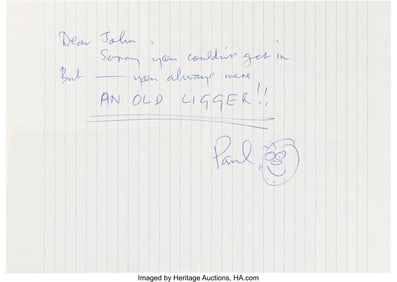 Dear John,
Sorry you couldn't get in
But — you always were
AN OLD LIGGER!!
Paul
Imaged by Heritage Auctions, HA.com